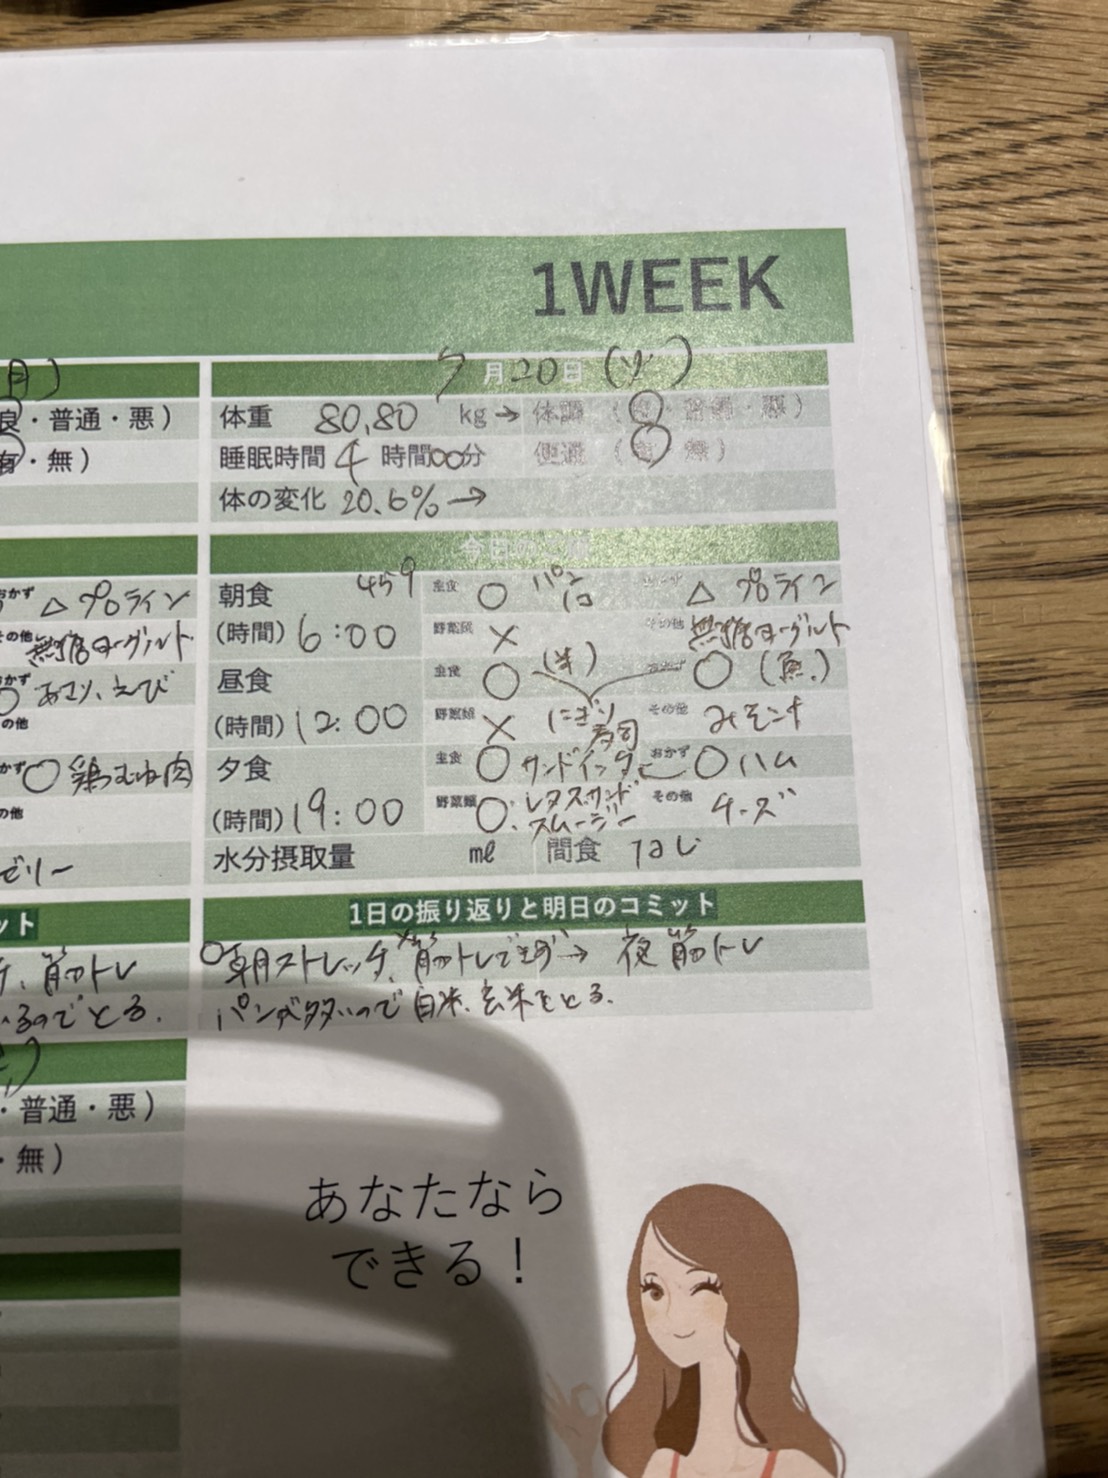 1WEEK
月)
良・普通・悪)
有・無)
おかず △ プロテイン
その他 無糖ヨーグルト
おかず ○ あさり、えび
の他
かず ○ 鶏むね肉
の他
ゼリー
ット
チ、筋トレ
いるのでとる。
・普通・悪)
・無)
7月20日(火)
体重 80.80 kg→ 体調 (良・普通・悪)
睡眠時間 4 時間00分 便通 (有・無)
体の変化 20.6%→
今日のご飯
朝食 459 主食 ○ パン おかず △ プロテイン
(時間) 6:00 野菜類 × その他 無糖ヨーグルト
昼食 主食 ○ (米) おかず ○ (魚)
(時間) 12:00 野菜類 × にぎり寿司 その他 みそ汁
夕食 主食 ○ サンドイッチ おかず ○ ハム
(時間) 19:00 野菜類 ○. レタスサンド スムージー その他 チーズ
水分摂取量 ml 間食 なし
1日の振り返りと明日のコミット
○朝ストレッチ、筋トレできず→ 夜筋トレ
パンが多いので白米、玄米をとる。
あなたなら
できる!